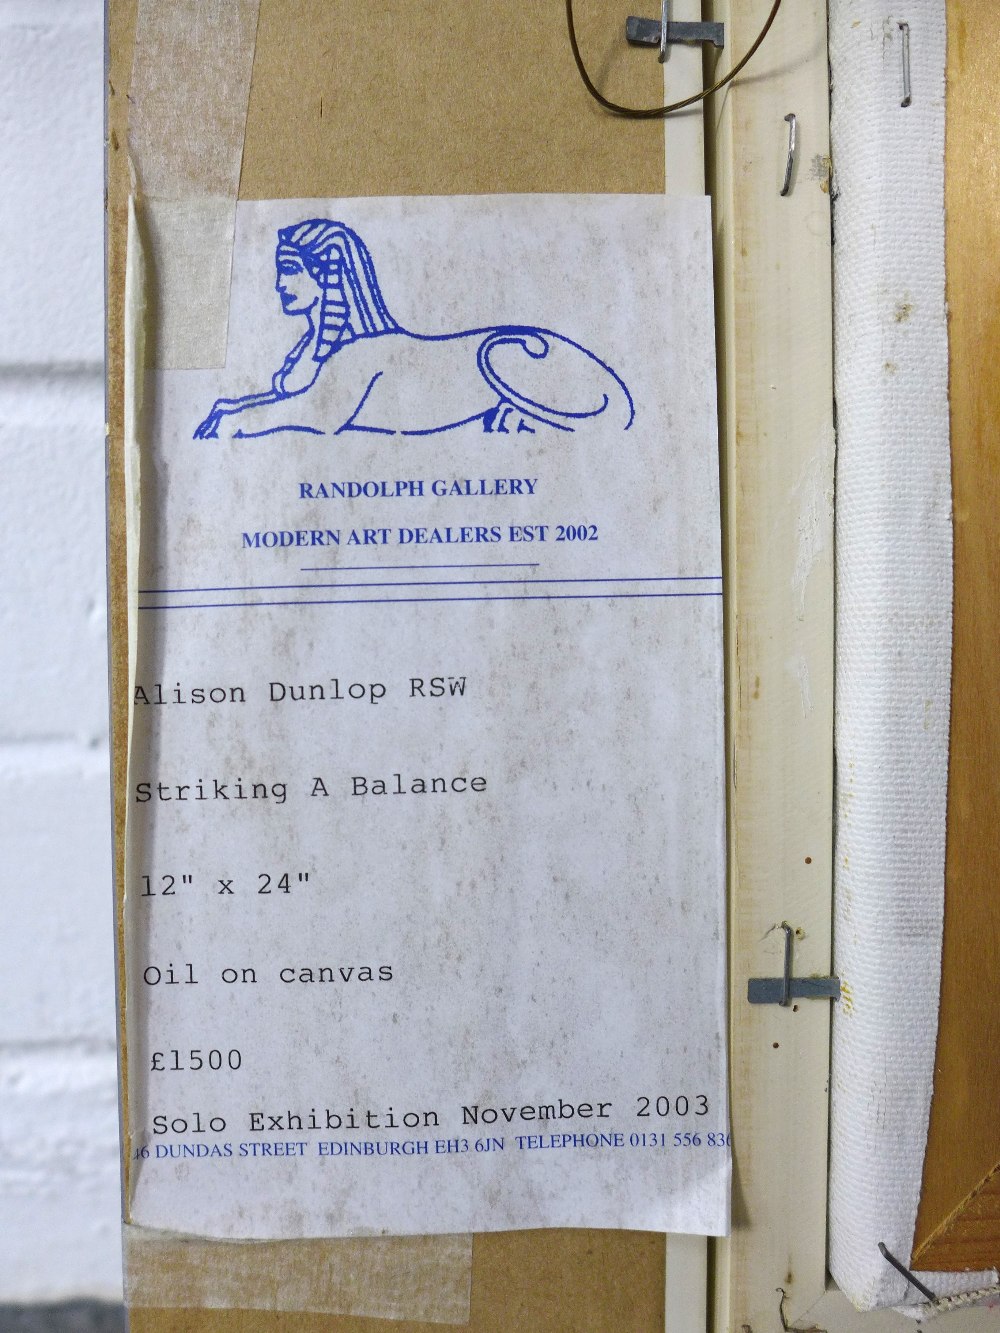 RANDOLPH GALLERY
MODERN ART DEALERS EST 2002
Alison Dunlop RSW
Striking A Balance
12" x 24"
Oil on canvas
£1500
Solo Exhibition November 2003
DUNDAS STREET EDINBURGH EH3 6JN TELEPHONE 0131 556